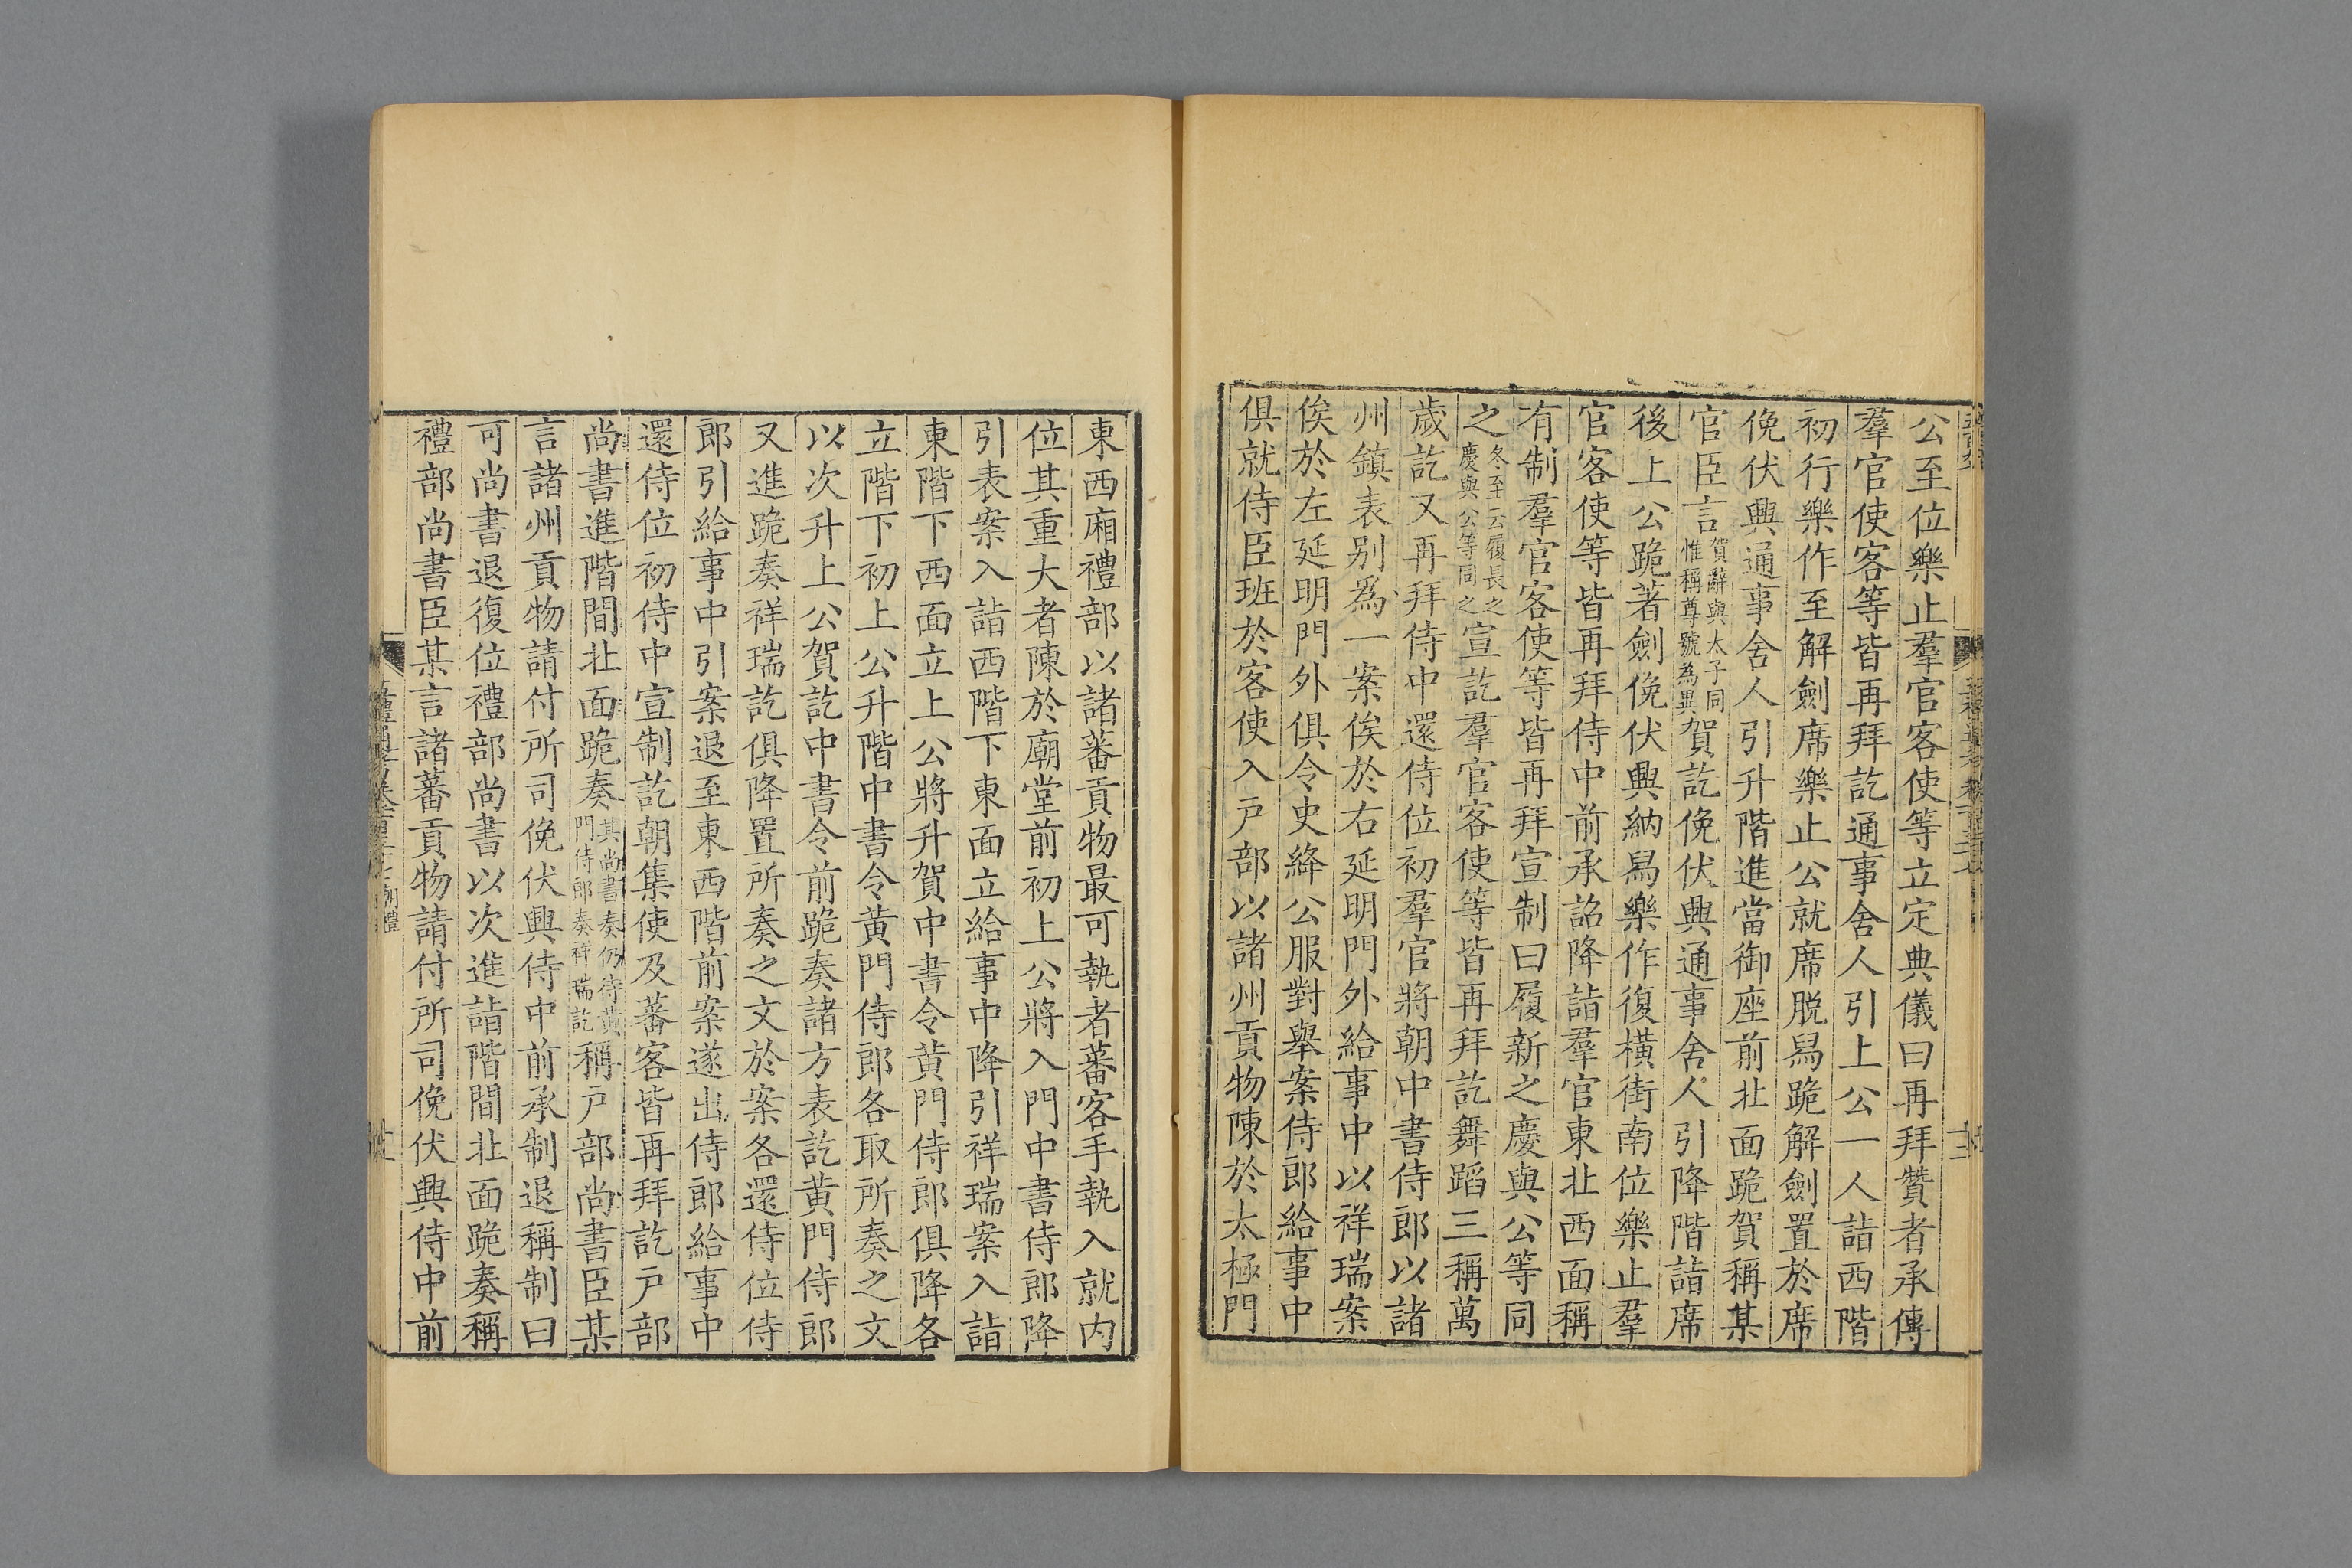 公至位樂止羣官客使等立定典儀曰再拜贊者承傳
羣官使客等皆再拜訖通事舍人引上公一人詣西階
初行樂作至解劍席樂止公就席脫舄跪解劍置於席
俛伏興通事舍人引升階進當御座前北面跪賀稱某
官臣言賀辭與太子同惟稱尊號為異賀訖俛伏興通事舍人引降階詣席
後上公跪著劍俛伏興納舄樂作復橫街南位樂止羣
官客使等皆再拜侍中前承詔降詣羣官東北西面稱
有制羣官客使等皆再拜宣制曰履新之慶與公等同
之冬至云履長之慶與公等同之宣訖羣官客使等皆再拜訖舞蹈三稱萬
歲訖又再拜侍中還侍位初羣官將朝中書侍郎以諸
州鎮表別爲一案俟於右延明門外給事中以祥瑞案
俟於左延明門外俱令史絳公服對舉案侍郎給事中
俱就侍臣班於客使入戶部以諸州貢物陳於太極門
東西廂禮部以諸蕃貢物最可執者蕃客手執入就內
位其重大者陳於廟堂前初上公將入門中書侍郎降
引表案入詣西階下東面立給事中降引祥瑞案入詣
東階下西面立上公將升賀中書令黃門侍郎俱降各
立階下初上公升階中書令黃門侍郎各取所奏之文
以次升上公賀訖中書令前跪奏諸方表訖黃門侍郎
又進跪奏祥瑞訖俱降置所奏之文於案各還侍位侍
郎引給事中引案退至東西階前案遂出侍郎給事中
還侍位初侍中宣制訖朝集使及蕃客皆再拜訖戶部
尚書進階間北面跪奏其尚書奏仍待黃門侍郎奏祥瑞訖稱戶部尚書臣某
言諸州貢物請付所司俛伏興侍中前承制退稱制曰
可尚書退復位禮部尚書以次進詣階間北面跪奏稱
禮部尚書臣某言諸蕃貢物請付所司俛伏興侍中前